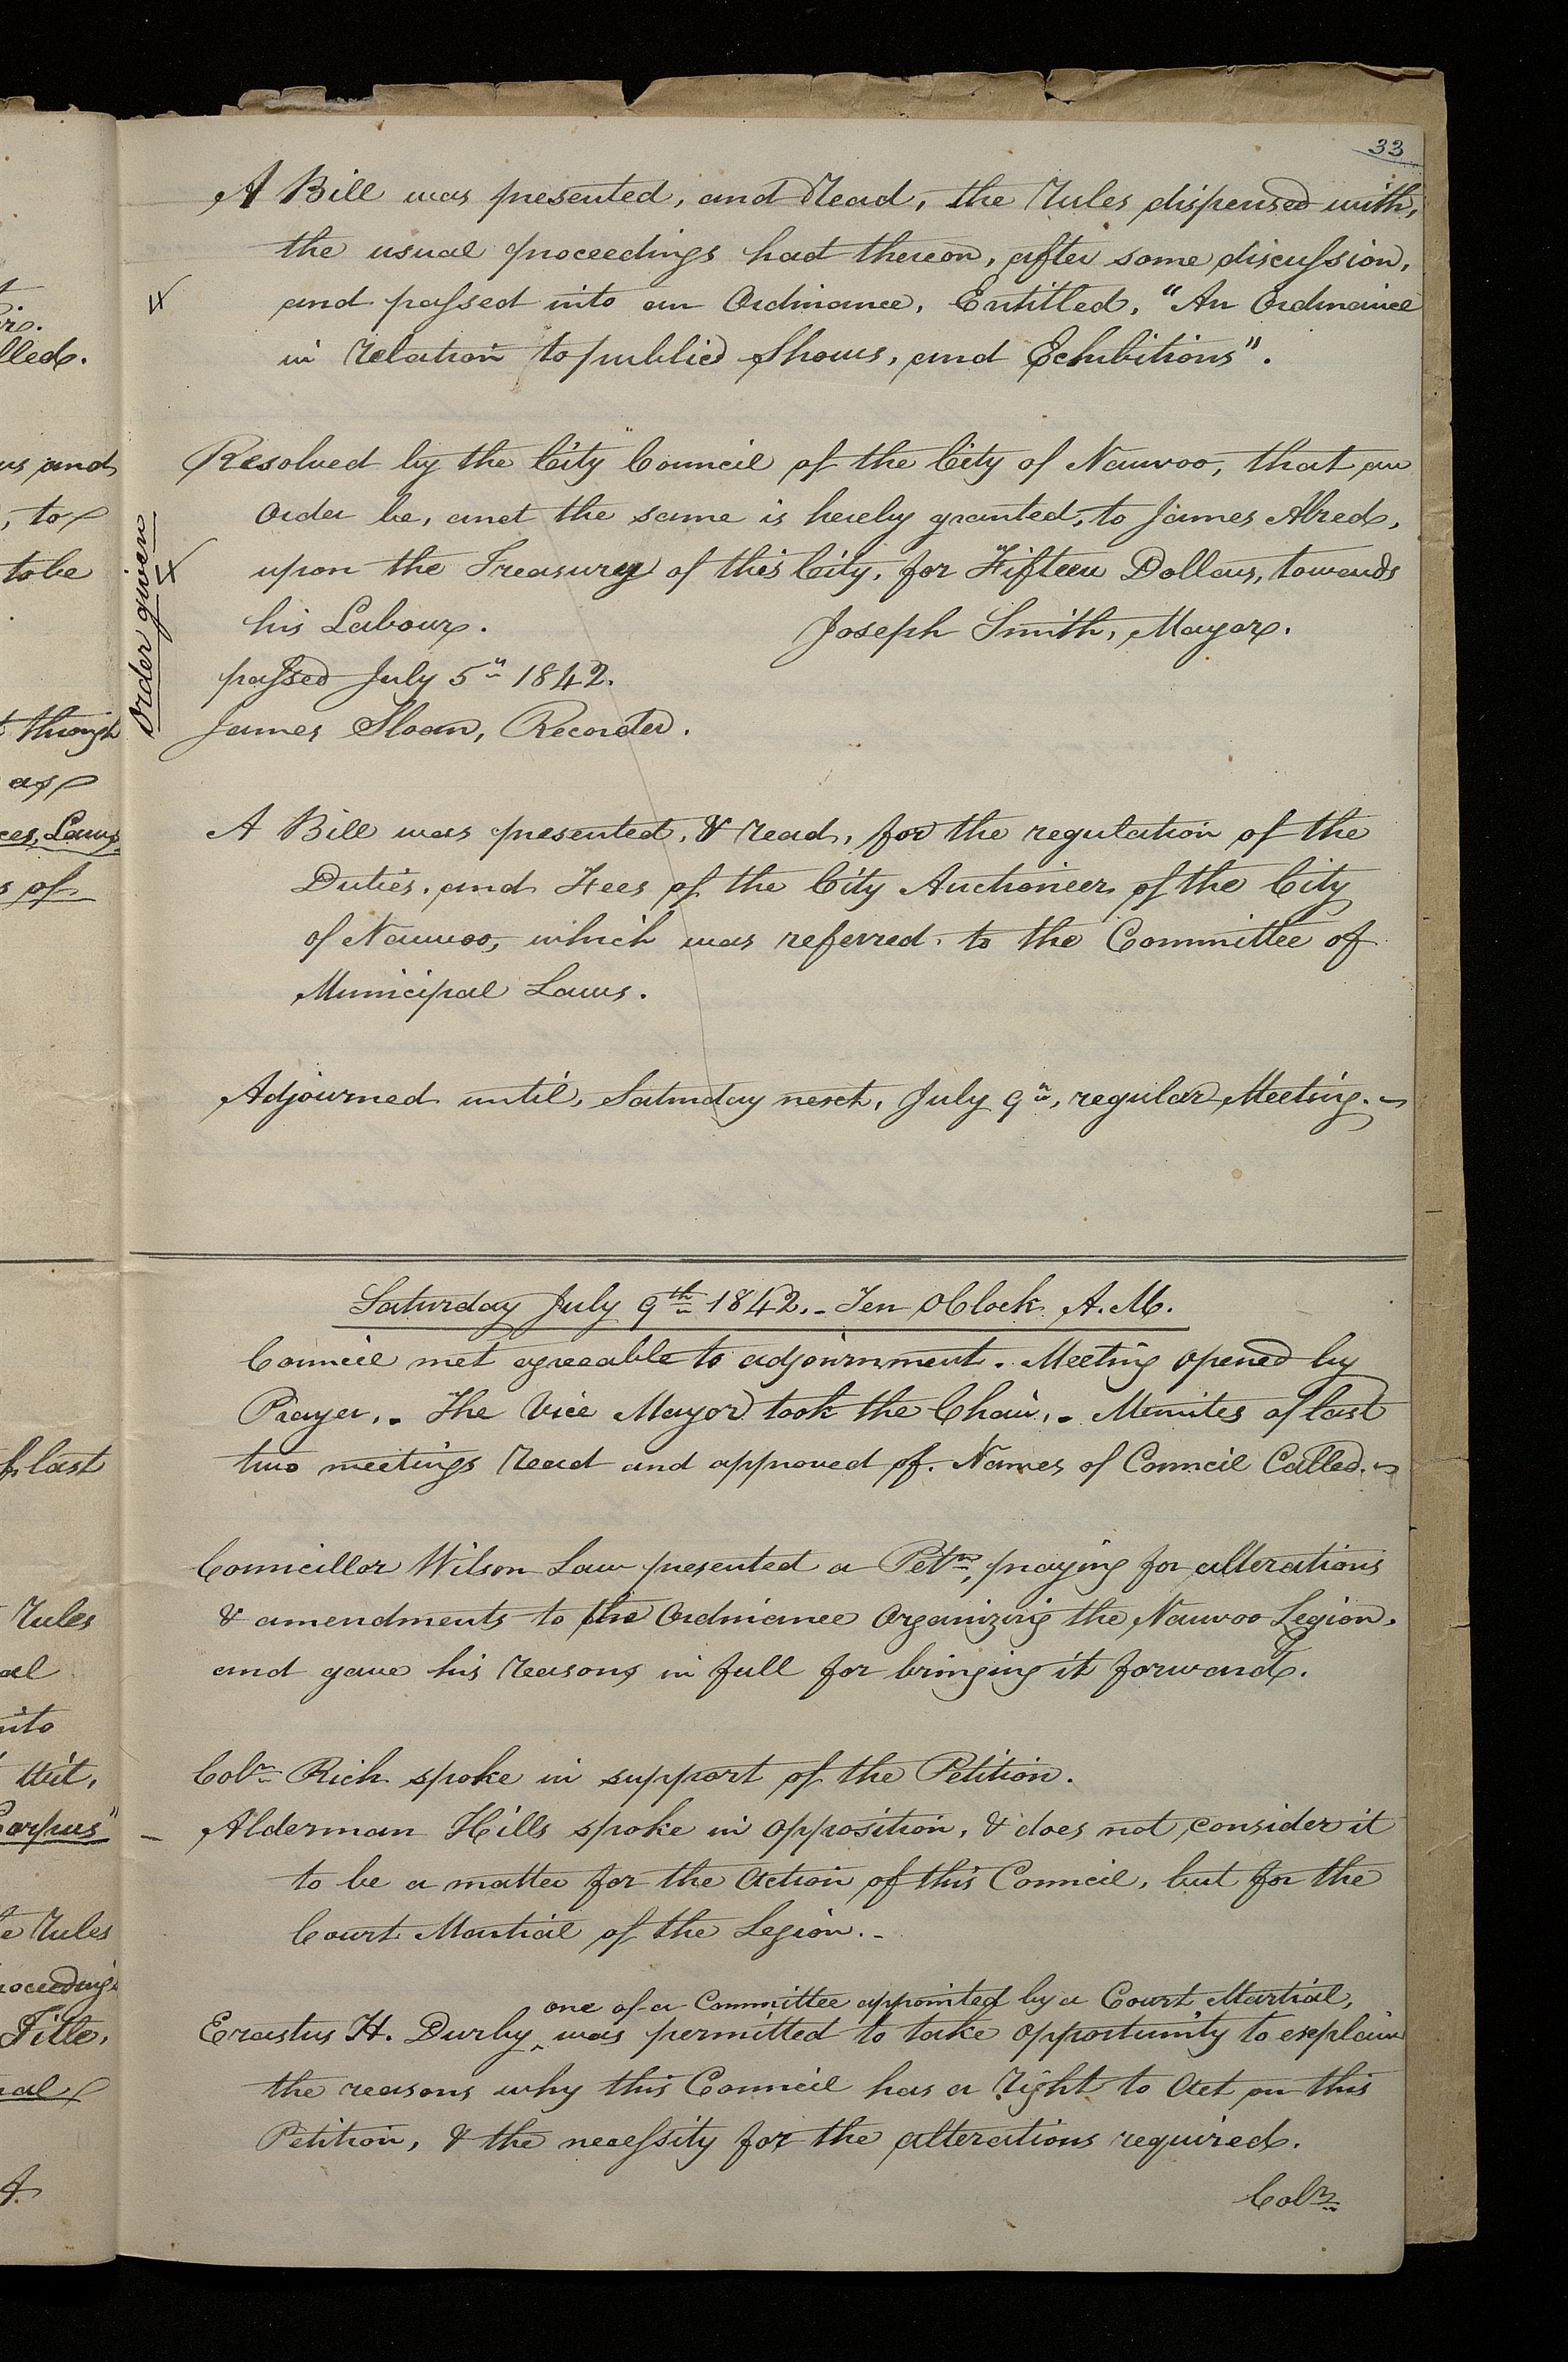 t.
lled.
us and
, to
to be
t though
as
ces, Laws
s of
last
Rules
al
into
tit,
Corpus"
e Rules
roceedings
Title,
4
33
A Bill was presented, and Read, the Rules dispensed with,
the usual proceedings had thereon, after some discussion,
and passed into an Ordinance, Entitled, "An Ordinance
in Relation to public Shows, and Exhibitions".
Order given
Resolved by the City Council of the City of Nauvoo, that an
Order be, and the same is hereby granted, to James Alred,
upon the Treasury of this City, for Fifteen Dollars, towards
his Labour.
Joseph Smith, Mayor.
passed July 5th 1842.
James Sloan, Recorder.
A Bill was presented, & read, for the regulation of the
Duties, and Fees of the City Auctioneer of the City
of Nauvoo, which was referred, to the Committee of
Municipal Laws.
Adjourned until, Saturday next, July 9th, regular Meeting.
Saturday July 9th 1842. - Ten oClock A.M.
Council met agreeable to adjournment. Meeting opened by
Prayer. - The Vice Mayor took the Chair. - Minutes of last
two meetings Read and approved of. Names of Council Called.
Councillor Wilson Law presented a Petn, praying for alterations
& amendments to the Ordinance Organizing the Nauvoo Legion,
and gave his Reasons in full for bringing it forward.
Colr Rich spoke in support of the Petition.
Alderman Hills spoke in opposition, & does not consider it
to be a matter for the Action of this Council, but for the
Court Martial of the Legion. -
one of a Committee appointed by a Court Martial,
Erastus H. Durby ‸ was permitted to take opportunity to explain
the reasons why this Council has a Right to Act on this
Petition, & the necessity for the alterations required.
Colr